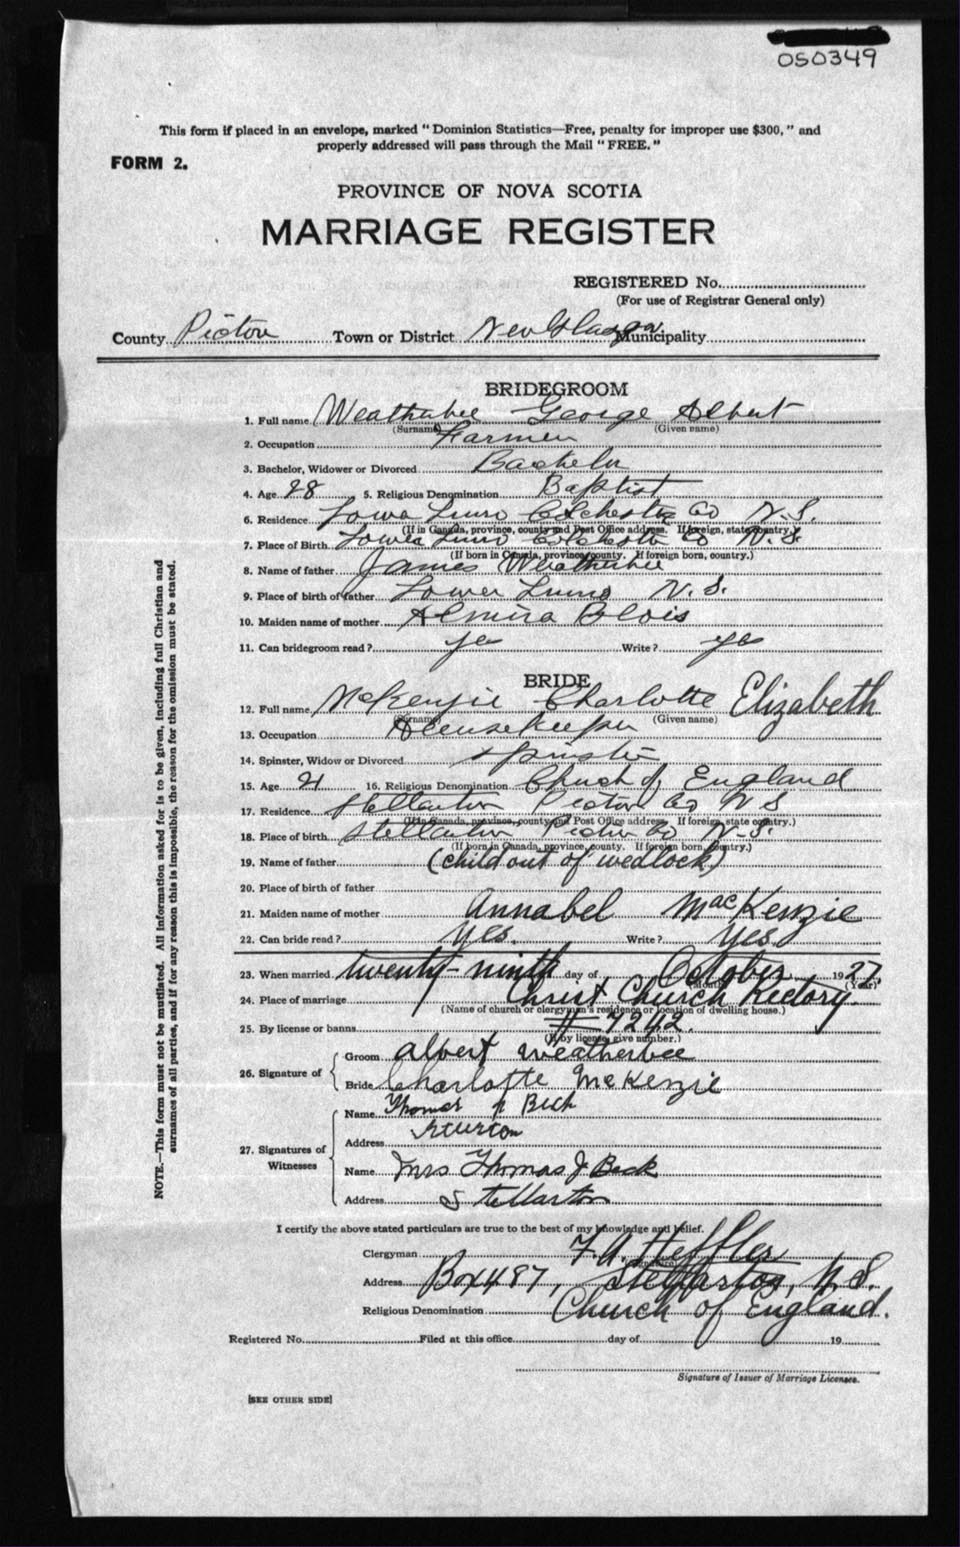 050349
This form if placed in an envelope, marked "Dominion Statistics—Free, penalty for improper use $300," and
properly addressed will pass through the Mail "FREE."
FORM 2.
PROVINCE OF NOVA SCOTIA
MARRIAGE REGISTER
REGISTERED No.
(For use of Registrar General only)
County Pictou Town or District New Glasgow Municipality
BRIDEGROOM
1. Full name Weatherbee George Albert
(Surname) (Given name)
2. Occupation Farmer
3. Bachelor, Widower or Divorced Bachelor
4. Age 28 5. Religious Denomination Baptist
6. Residence Lower Colchester Co N.S.
(If in Canada, province, county and Post Office address. If foreign, state country.)
7. Place of Birth Lower Colchester Co N.S.
(If born in Canada, province, county. If foreign born, country.)
8. Name of father James Weatherbee
9. Place of birth of father Lower N.S.
10. Maiden name of mother Almira Blois
11. Can bridegroom read? yes Write? yes
BRIDE
12. Full name McKenzie Charlotte Elizabeth
(Surname) (Given name)
13. Occupation Housekeeper
14. Spinster, Widow or Divorced Spinster
15. Age 21 16. Religious Denomination Church of England
17. Residence Stellarton Pictou Co N S
(If in Canada, province, county and Post Office address. If foreign, state country.)
18. Place of birth Stellarton Pictou Co N.S.
(If born in Canada, province, county. If foreign born, country.)
19. Name of father (child out of wedlock)
20. Place of birth of father
21. Maiden name of mother Annabel MacKenzie
22. Can bride read? Yes. Write? Yes.
23. When married twenty-ninth day of October 1927
(Month) (Year)
24. Place of marriage Christ Church Rectory.
(Name of church or clergyman's residence or location of dwelling house.)
25. By license or banns # 7242.
(If by license, give number.)
26. Signature of
Groom Albert Weatherbee
Bride Charlotte McKenzie
27. Signatures of Witnesses
Name Thomas J Beck
Address
Name Mrs Thomas J Beck
Address Stellarton
I certify the above stated particulars are true to the best of my knowledge and belief.
Clergyman F. A. Heffler
Address Box 487, Stellarton, N.S.
Religious Denomination Church of England.
Registered No. Filed at this office day of 19
Signature of Issuer of Marriage Licenses.
[SEE OTHER SIDE]
NOTE.—This form must not be mutilated. All information asked for is to be given, including full Christian and
surnames of all parties, and if for any reason this is impossible, the reason for the omission must be stated.